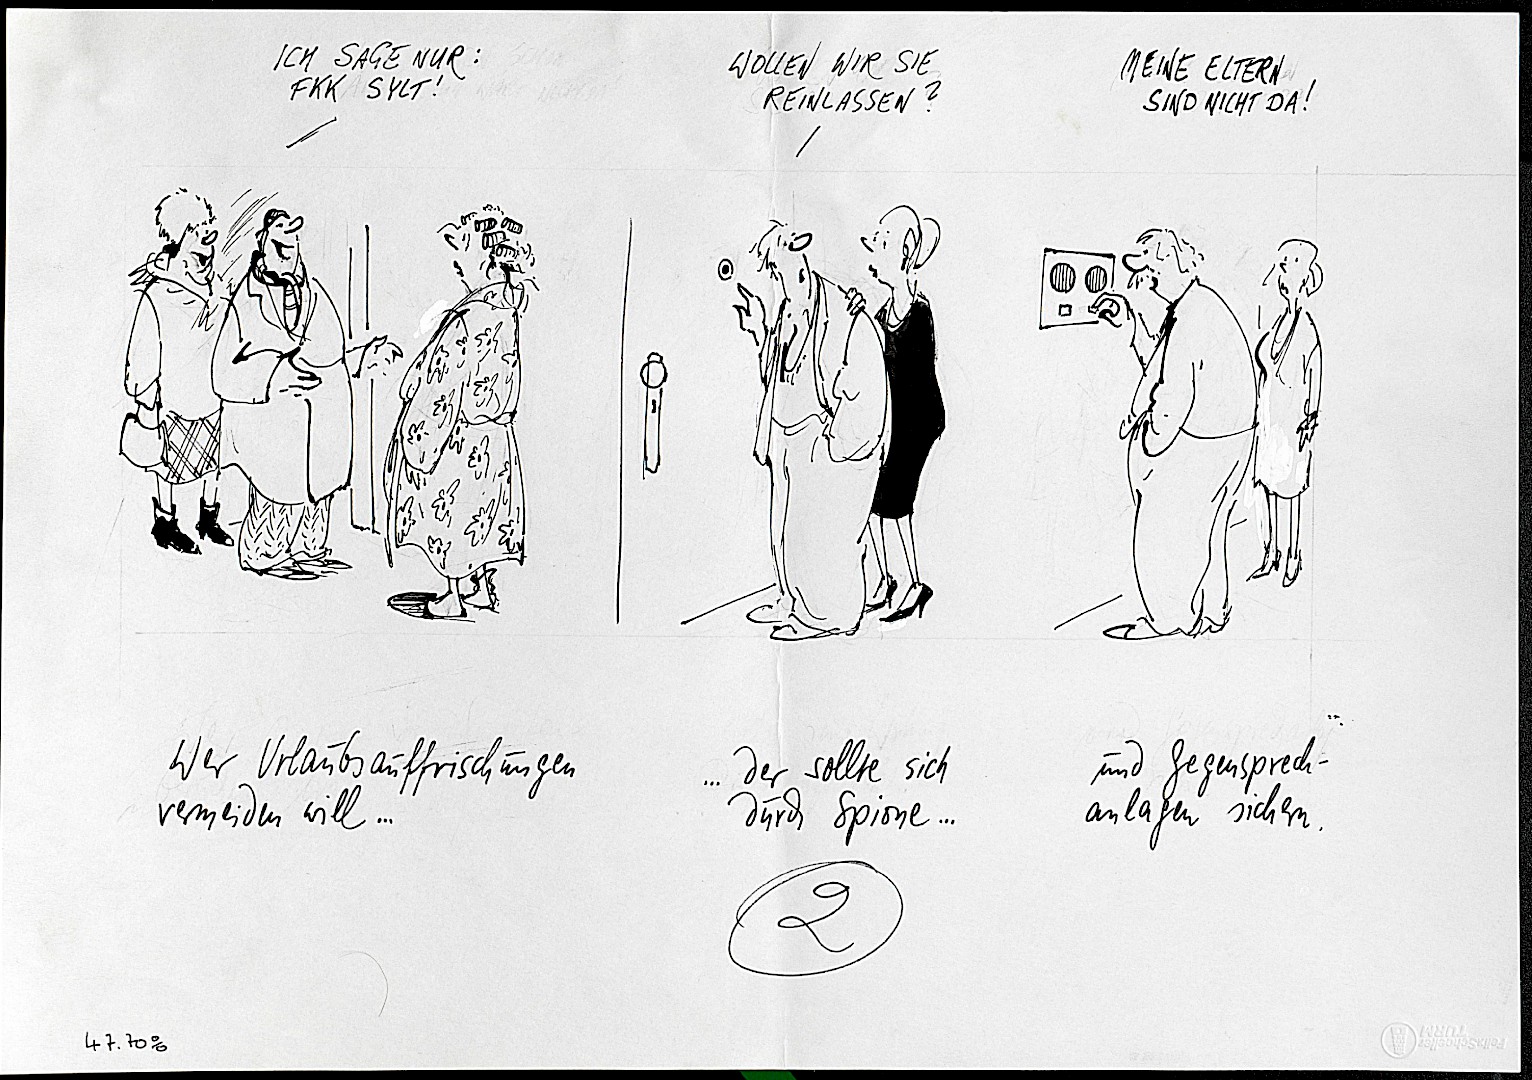 ICH SAGE NUR:
FKK SYLT!
WOLLEN WIR SIE
REINLASSEN?
MEINE ELTERN
SIND NICHT DA!
Wer Urlaubsauffrischungen
vermeiden will...
... der sollte sich
durch Spione...
und Gegensprech-
anlagen sichern.
2
47.70%